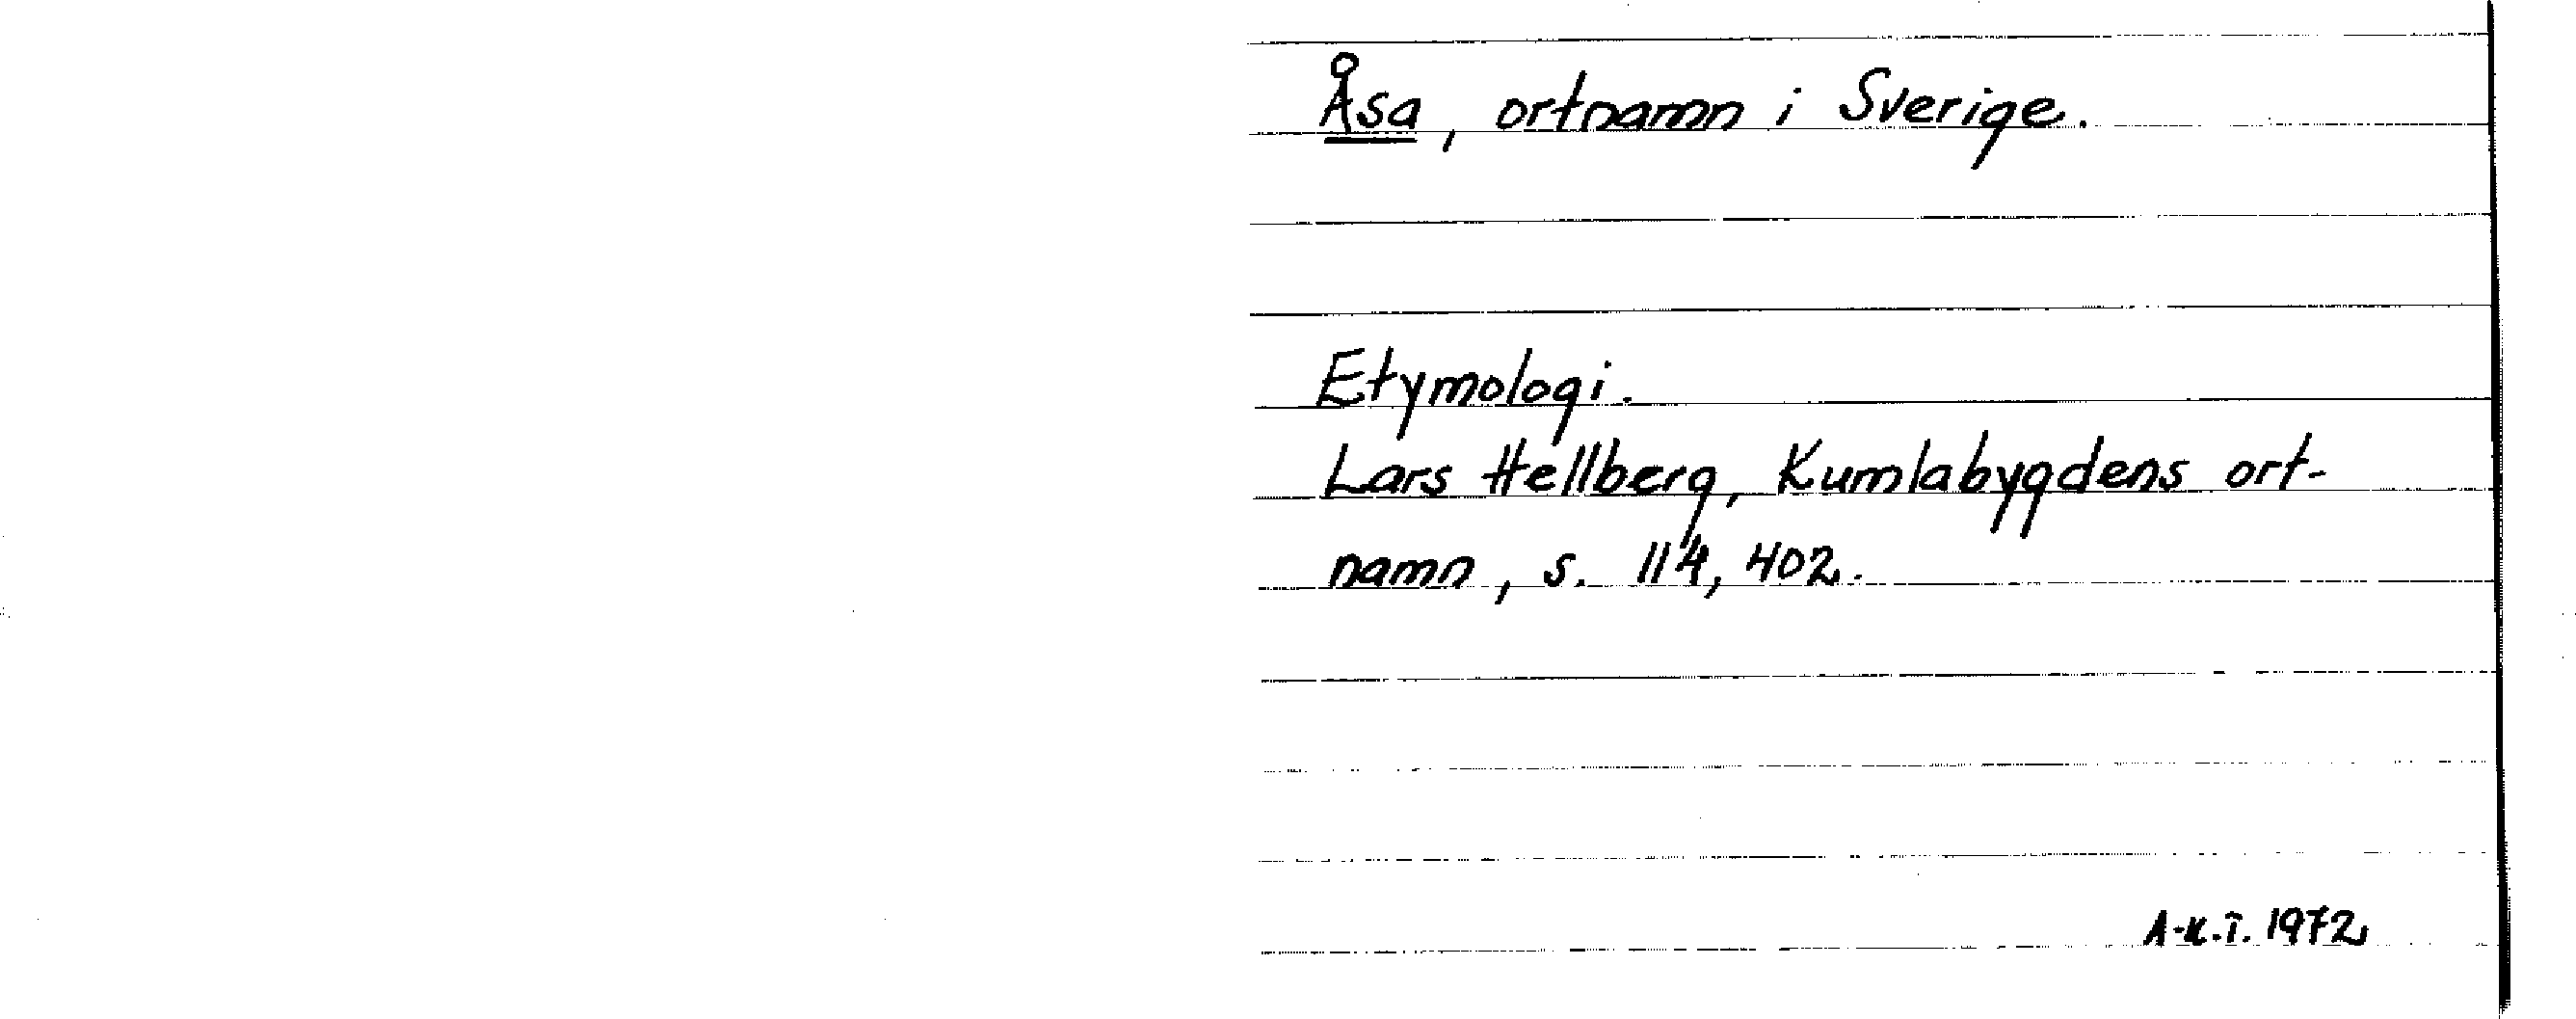 Åsa, ortnamn i Sverige.
Etymologi.
Lars Hellberg, Kumlabygdens ort-
namn, s. 114, 402.
A-K.T. 1972